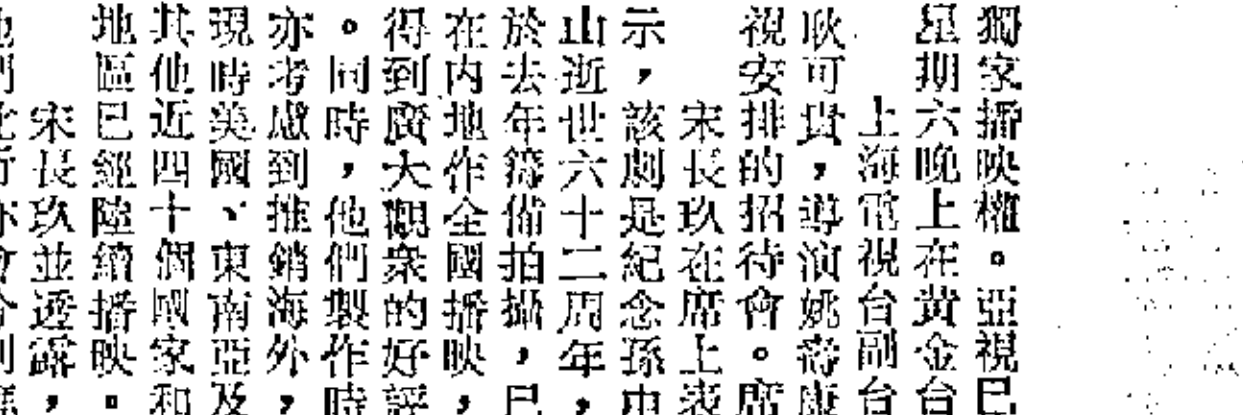 獨家播映權。亞視已
星期六晚上在黃金台
上海電視台副台
耿可貴，導演姚壽康
視安排的招待會。席
宋長玖在席上表
示，該劇是紀念孫中
山逝世六十二周年，
於去年籌備拍攝，已
在内地作全國播映，
得到廣大觀衆的好評
。同時，他們製作時
亦考慮到推銷海外，
現時美國、東南亞及
其他近四十個國家和
地區已經陸續播映。
宋長玖並透露，